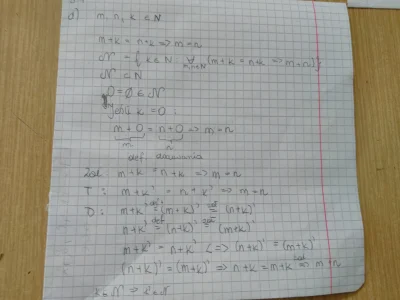 d) m, n, k ∈ N
m+k = n+k => m=n
N = { k∈N : ∀ m,n∈N (m+k = n+k => m=n)}
N ⊂ N
0 = ∅ ∈ N
Jeśli k = 0 :
m+0 = n+0 => m=n
m n
def. dodawania
Zał. m+k = n+k => m=n
T : m+k' = n+k' => m=n
D : m+k' = (m+k)' = (n+k)'
n+k' = (n+k)' = (m+k)'
m+k' = n+k' <=> (n+k)' = (m+k)'
(n+k)' = (m+k)' => n+k = m+k => m=n
k∈N => k'∈N